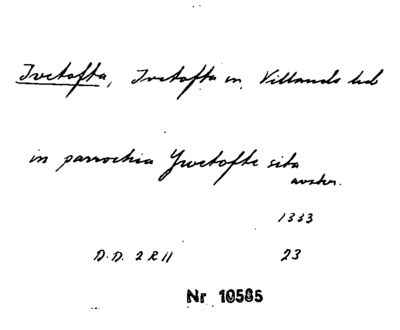 Ivetofta, Ivetofta sn, Villands hd
in parrochia Ywetofte sita
avskr.
1333
D.D. 2 R II 23
Nr 10505